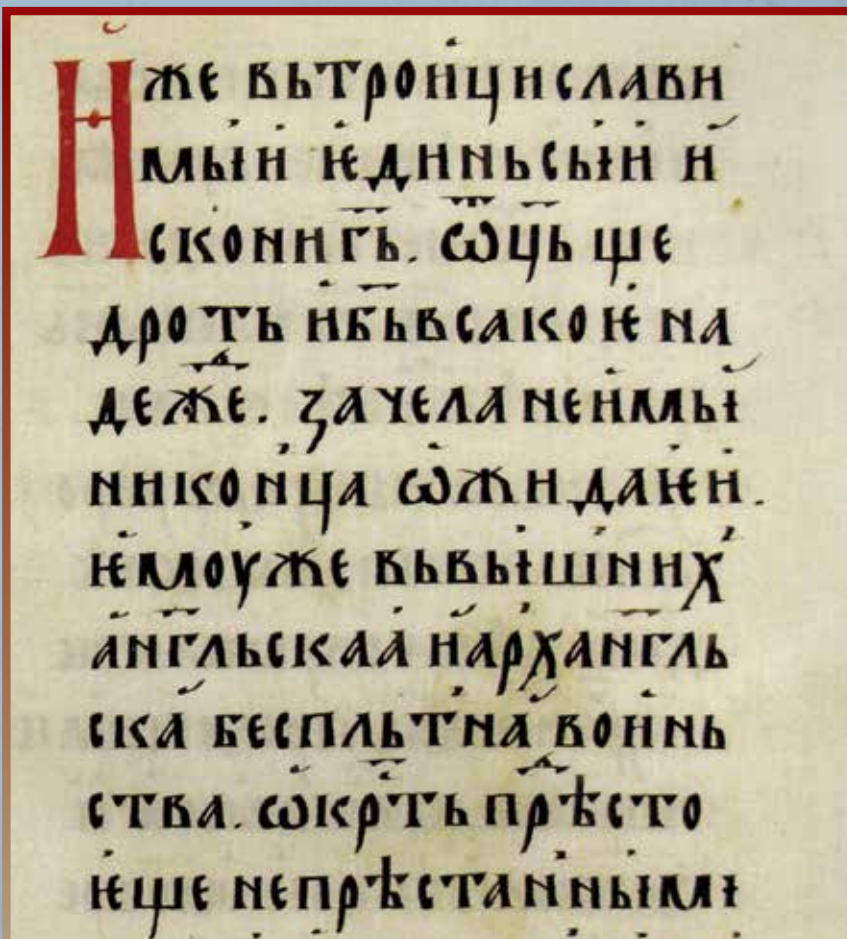 Иже вьтроици слави
мыи ѥдиньсыи и
скони г҃ь. ѡц҃ь ще
дроть и б҃ь всакоѥ на
деже. зачела неимыи
ни конца ѡжидаѥи.
ѥмоуже вьвышних
анг҃льскаа и арханг҃ль
ска беспльтна воинь
ства. ѡкрть прѣсто
ѥще непрѣстанными